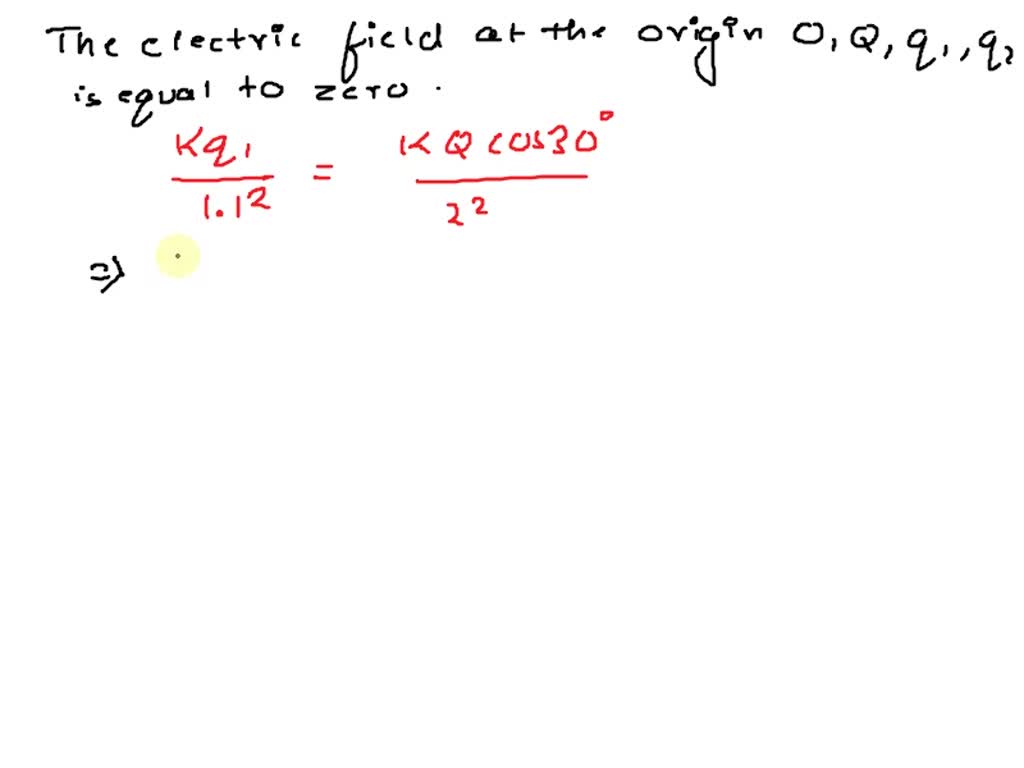 The electric field at the origin O, Q, q₁, q₂
is equal to zero.
Kq₁ / 1.1² = KQ cos30° / 2²
⇒